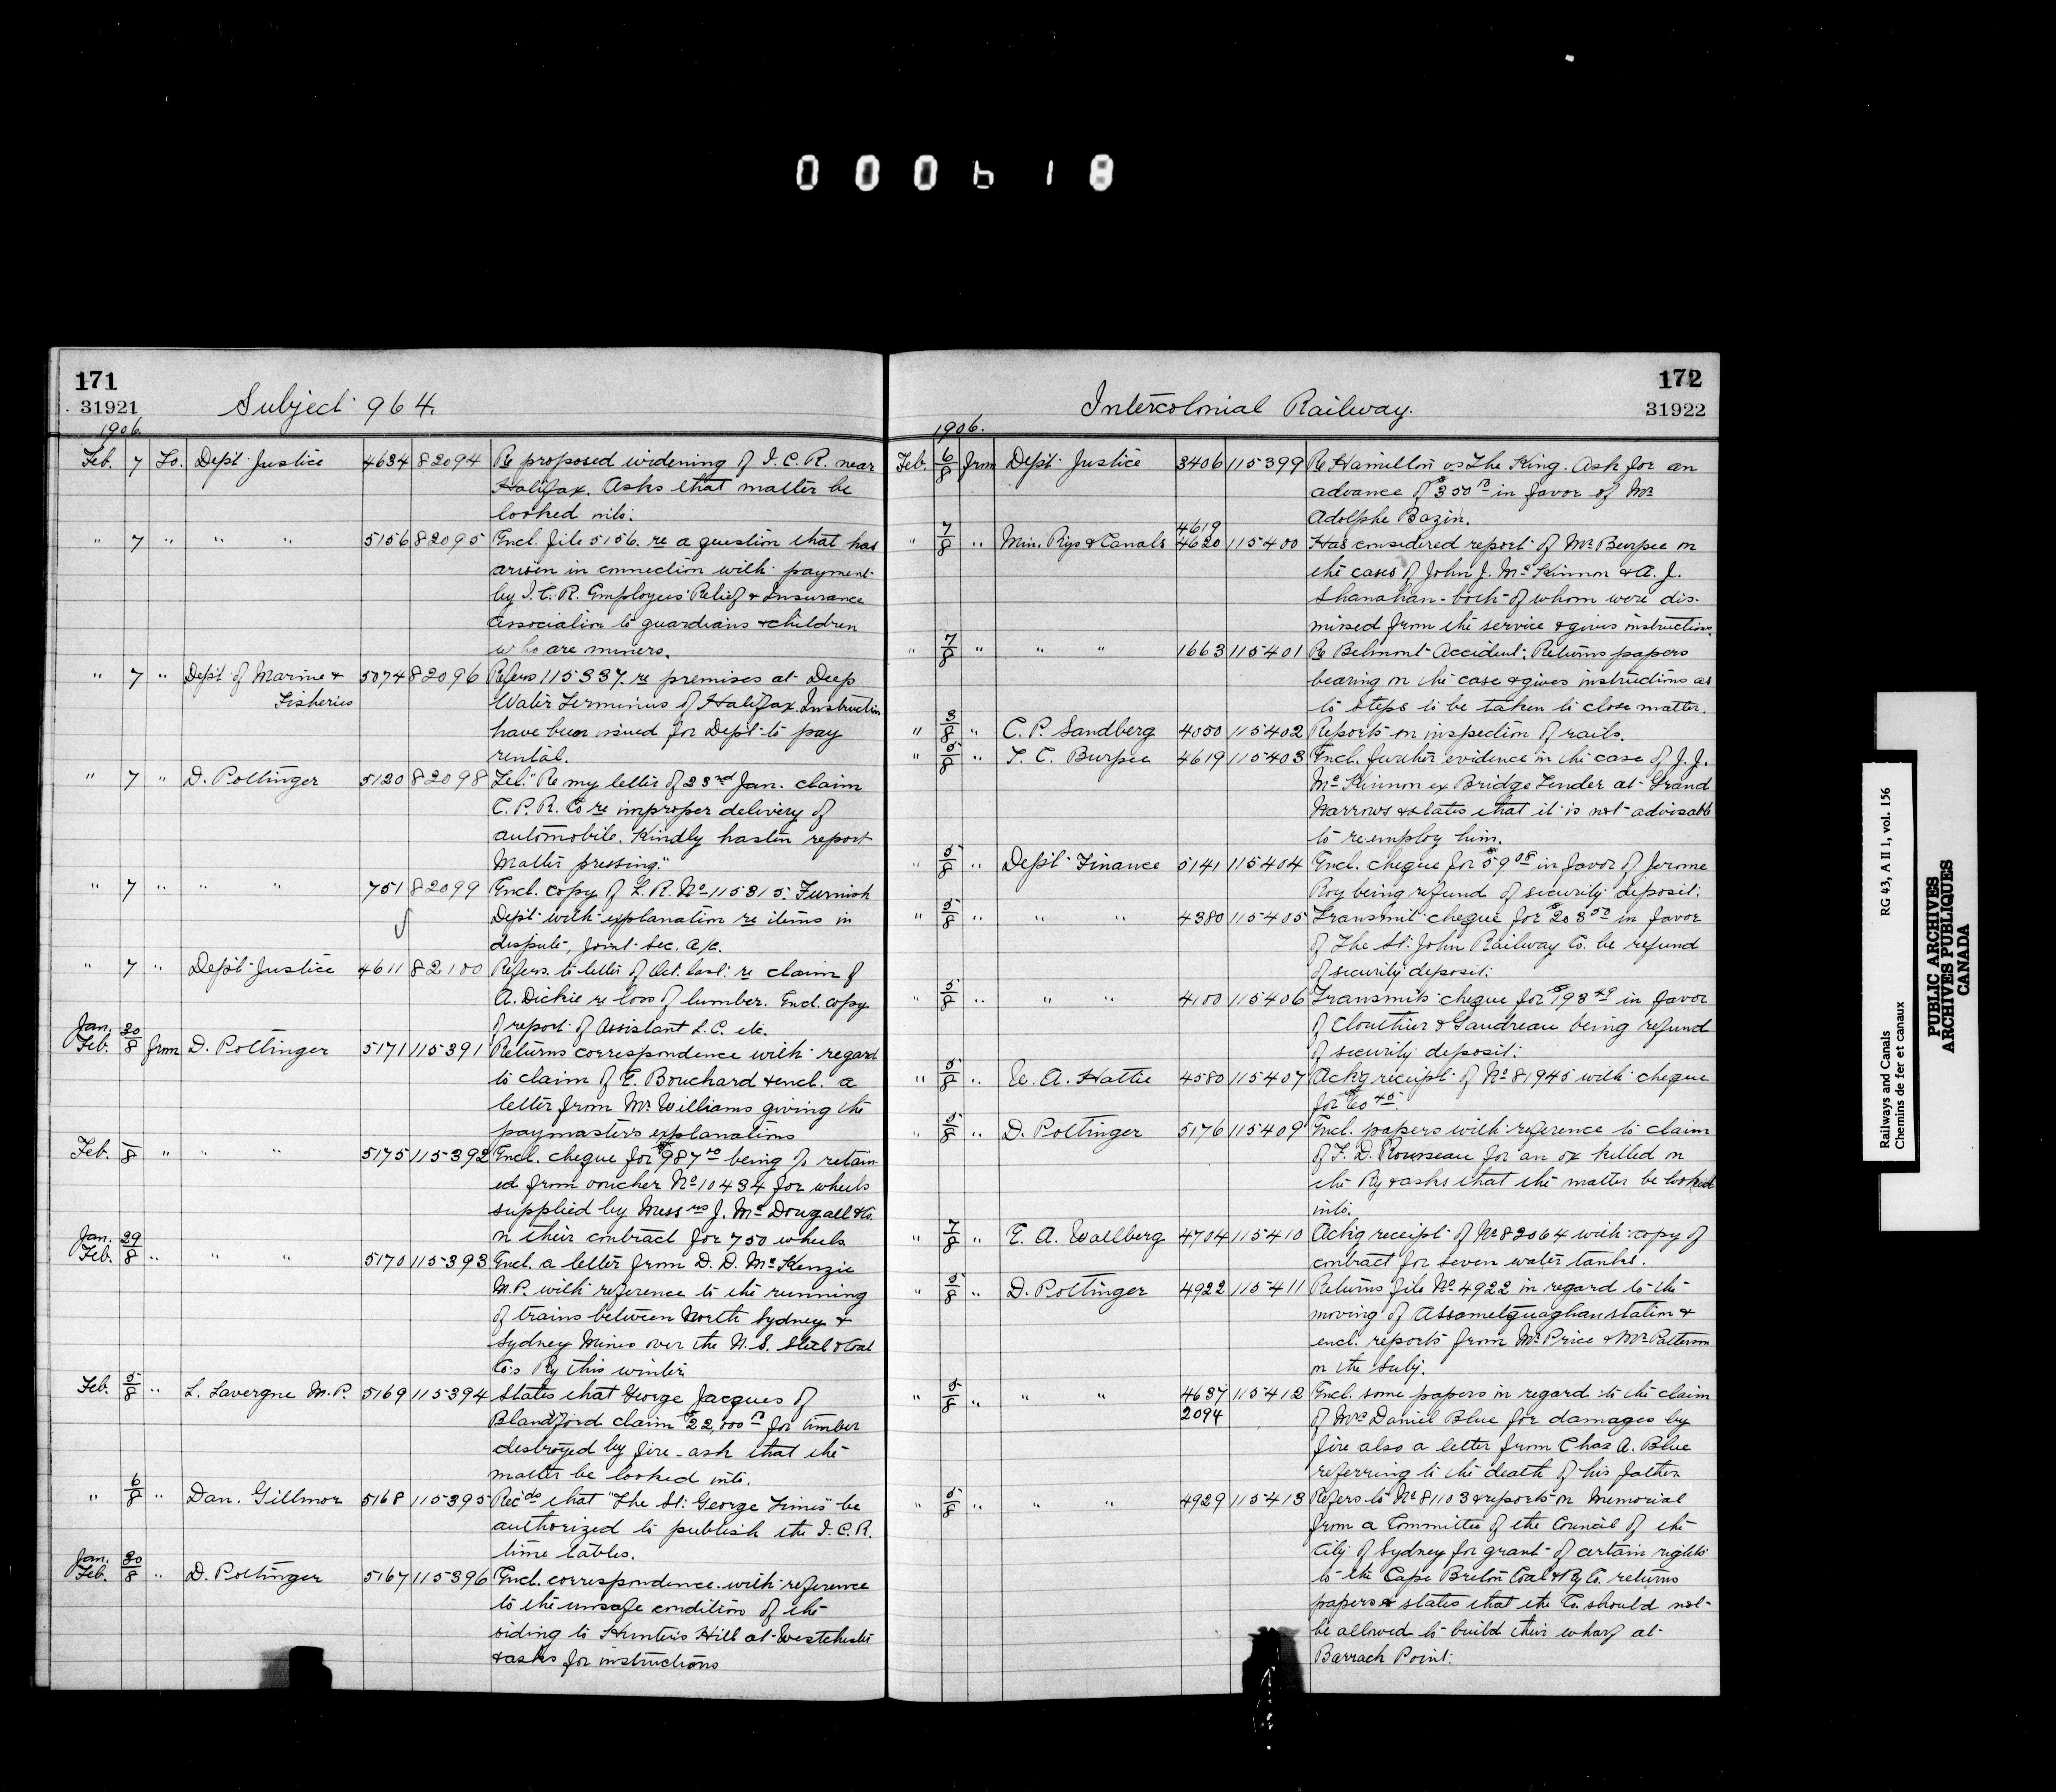 000618
171
31921
Subject 964.
1906.
Feb. 7 To. Dep't Justice 4634 82094 Re proposed widening of I. C. R. near
Halifax. Asks that matter be
looked into.
" 7 " " " 5156 82095 Encl. file 5156. re a question that has
arisen in connection with payment
by I. C. R. Employees' Relief & Insurance
Association to guardians & children
who are minors.
" 7 " Dep't of Marine & 5074 82096 Refers 115337. re premises at Deep
Fisheries Water Terminus of Halifax. Instruction
have been issued for Dep't to pay
rental.
" 7 " D. Pottinger 5120 82098 Tel. "Re my letter of 23rd Jan. claim
C. P. R. Co re improper delivery of
automobile. Kindly hasten report
Matter pressing."
" 7 " " " 751 82099 Encl. copy of L. R. No 115315. Furnish
Dep't with explanation re items in
dispute, Joint Sec. a/c.
" 7 " Dep't Justice 4611 82100 Refers. to letter of Oct. last re claim of
A. Dickie re loss of lumber. Encl. copy
of report of Assistant L. C. etc.
Jan. 30
Feb. 8 from D. Pottinger 5171 115391 Returns correspondence with regard
to claim of E. Bouchard & encl. a
letter from Mr Williams giving the
paymaster's explanations
Feb. 8 " " " 5175 115392 Encl. cheque for $987 being % retain
ed from voucher No 10434 for wheels
supplied by Messrs J. McDougall & Co.
on their contract for 750 wheels
Jan. 29
Feb. 8 " " " 5170 115393 Encl. a letter from D. D. McKenzie
M.P. with reference to the running
of trains between North Sydney &
Sydney Mines over the N. S. Steel & Coal
Co's Ry this winter
Feb. 5/8 " L. Lavergne M.P. 5169 115394 States that George Jacques of
Blandford claim $22,000 for timber
destroyed by fire - ask that the
matter be looked into.
" 6/8 " Dan. Gillmor 5168 115395 Recds that "The St. George Times" be
authorized to publish the I. C. R.
time tables.
Jan. 30
Feb. 8 " D. Pottinger 5167 115396 Encl. correspondence with reference
to the unsafe condition of the
siding to Hunter's Hill at Westchester
& asks for instructions
172
31922
Intercolonial Railway.
1906.
Feb. 6/8 from Dep't Justice 3406 115399 Re Hamilton vs The King. Ask for an
advance of $350 in favor of Mr
Adolphe Bazin.
4619
" 7/8 " Min. Rys & Canals 4620 115400 Has considered report of Mr Burpee on
the cases of John J. McKinnon & A. J.
Shanahan - both of whom were dis-
missed from the service & gives instructions.
" 7/8 " " " 1663 115401 Re Belmont Accident. Returns papers
bearing on the case & gives instructions as
to steps to be taken to close matter.
" 3/8 " C. P. Sandberg 4050 115402 Reports on inspection of rails.
" 5/8 " T. C. Burpee 4619 115403 Encl. further evidence in the case of J. J.
McKinnon ex Bridge Tender at Grand
Narrows & states that it is not advisable
to reemploy him.
" 5/8 " Dep't Finance 5141 115404 Encl. cheque for $59 08 in favor of Jerome
Roy being refund of security deposit.
" 5/8 " " " 4380 115405 Transmit cheque for $203 50 in favor
of The St. John Railway Co. be refund
of security deposit.
" 5/8 " " " 4100 115406 Transmits cheque for $193 49 in favor
of Clouthier & Gaudreau being refund
of security deposit.
" 5/8 " W. A. Hattie 4580 115407 Ackg receipt of No 81945 with cheque
for $60 45.
" 5/8 " D. Pottinger 5176 115409 Encl. papers with reference to claim
of F. D. Rousseau for an ox killed on
the Ry & asks that the matter be looked
into.
" 7/8 " E. A. Wallberg 4704 115410 Ackg receipt of No 82064 with copy of
contract for seven water tanks.
" 5/8 " D. Pottinger 4922 115411 Returns file No 4922 in regard to the
moving of Assametquaghan station &
encl. reports from Mr Price & Mr Patterson
on the Subj.
" 5/8 " " " 4637 115412 Encl. some papers in regard to the claim
2094 of Mrs Daniel Blue for damages by
fire also a letter from Chas A. Blue
referring to the death of his father
" 5/8 " " " 4929 115413 Refers to No 81103 & reports on Memorial
from a Committee of the Council of the
City of Sydney for grant of certain rights
to the Cape Breton Coal & Ry Co. returns
papers & states that the Co. should not
be allowed to build their wharf at
Barrack Point.
Railways and Canals RG 43, A II 1, vol. 156
Chemins de fer et canaux
PUBLIC ARCHIVES
ARCHIVES PUBLIQUES
CANADA